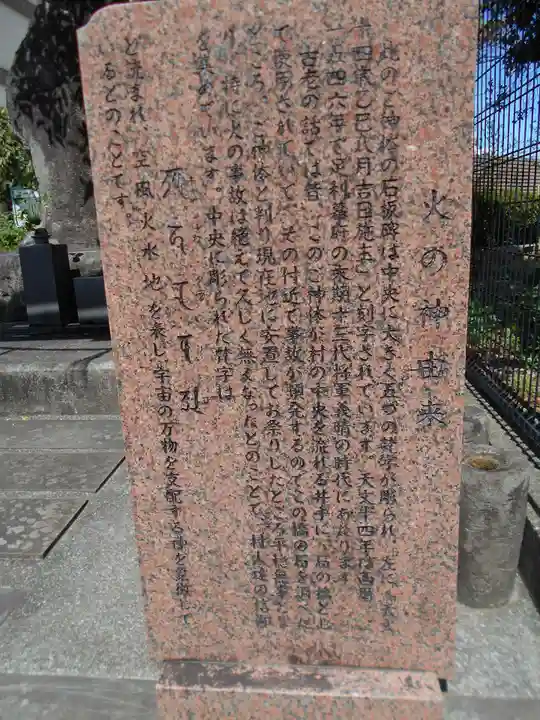 火の神由来
此のご神体の石板碑は中央に大きく五つの梵字が彫られ、左に「天文
十四歳乙巳八月吉日施主」と刻字されています。天文十四年は西暦
一五四六年で足利幕府の末期十三代将軍義晴の時代にあたります。
古老の話では昔、このご神体が村の中央を流れる井手に、石の橋とし
て使用されていて、その付近で事故が頻発するのでこの橋の石を調べた
ところ、ご神体と判り現在地に安置してお祭りしたところ平穏無事とな
り、特に火の事故は絶えて久しく無くなったとのことで、村人達の信仰
を集めています。中央に彫られた梵字は
と読まれ、空風火水地を表し宇宙の万物を支配する神を象徴して
いるとのことです。